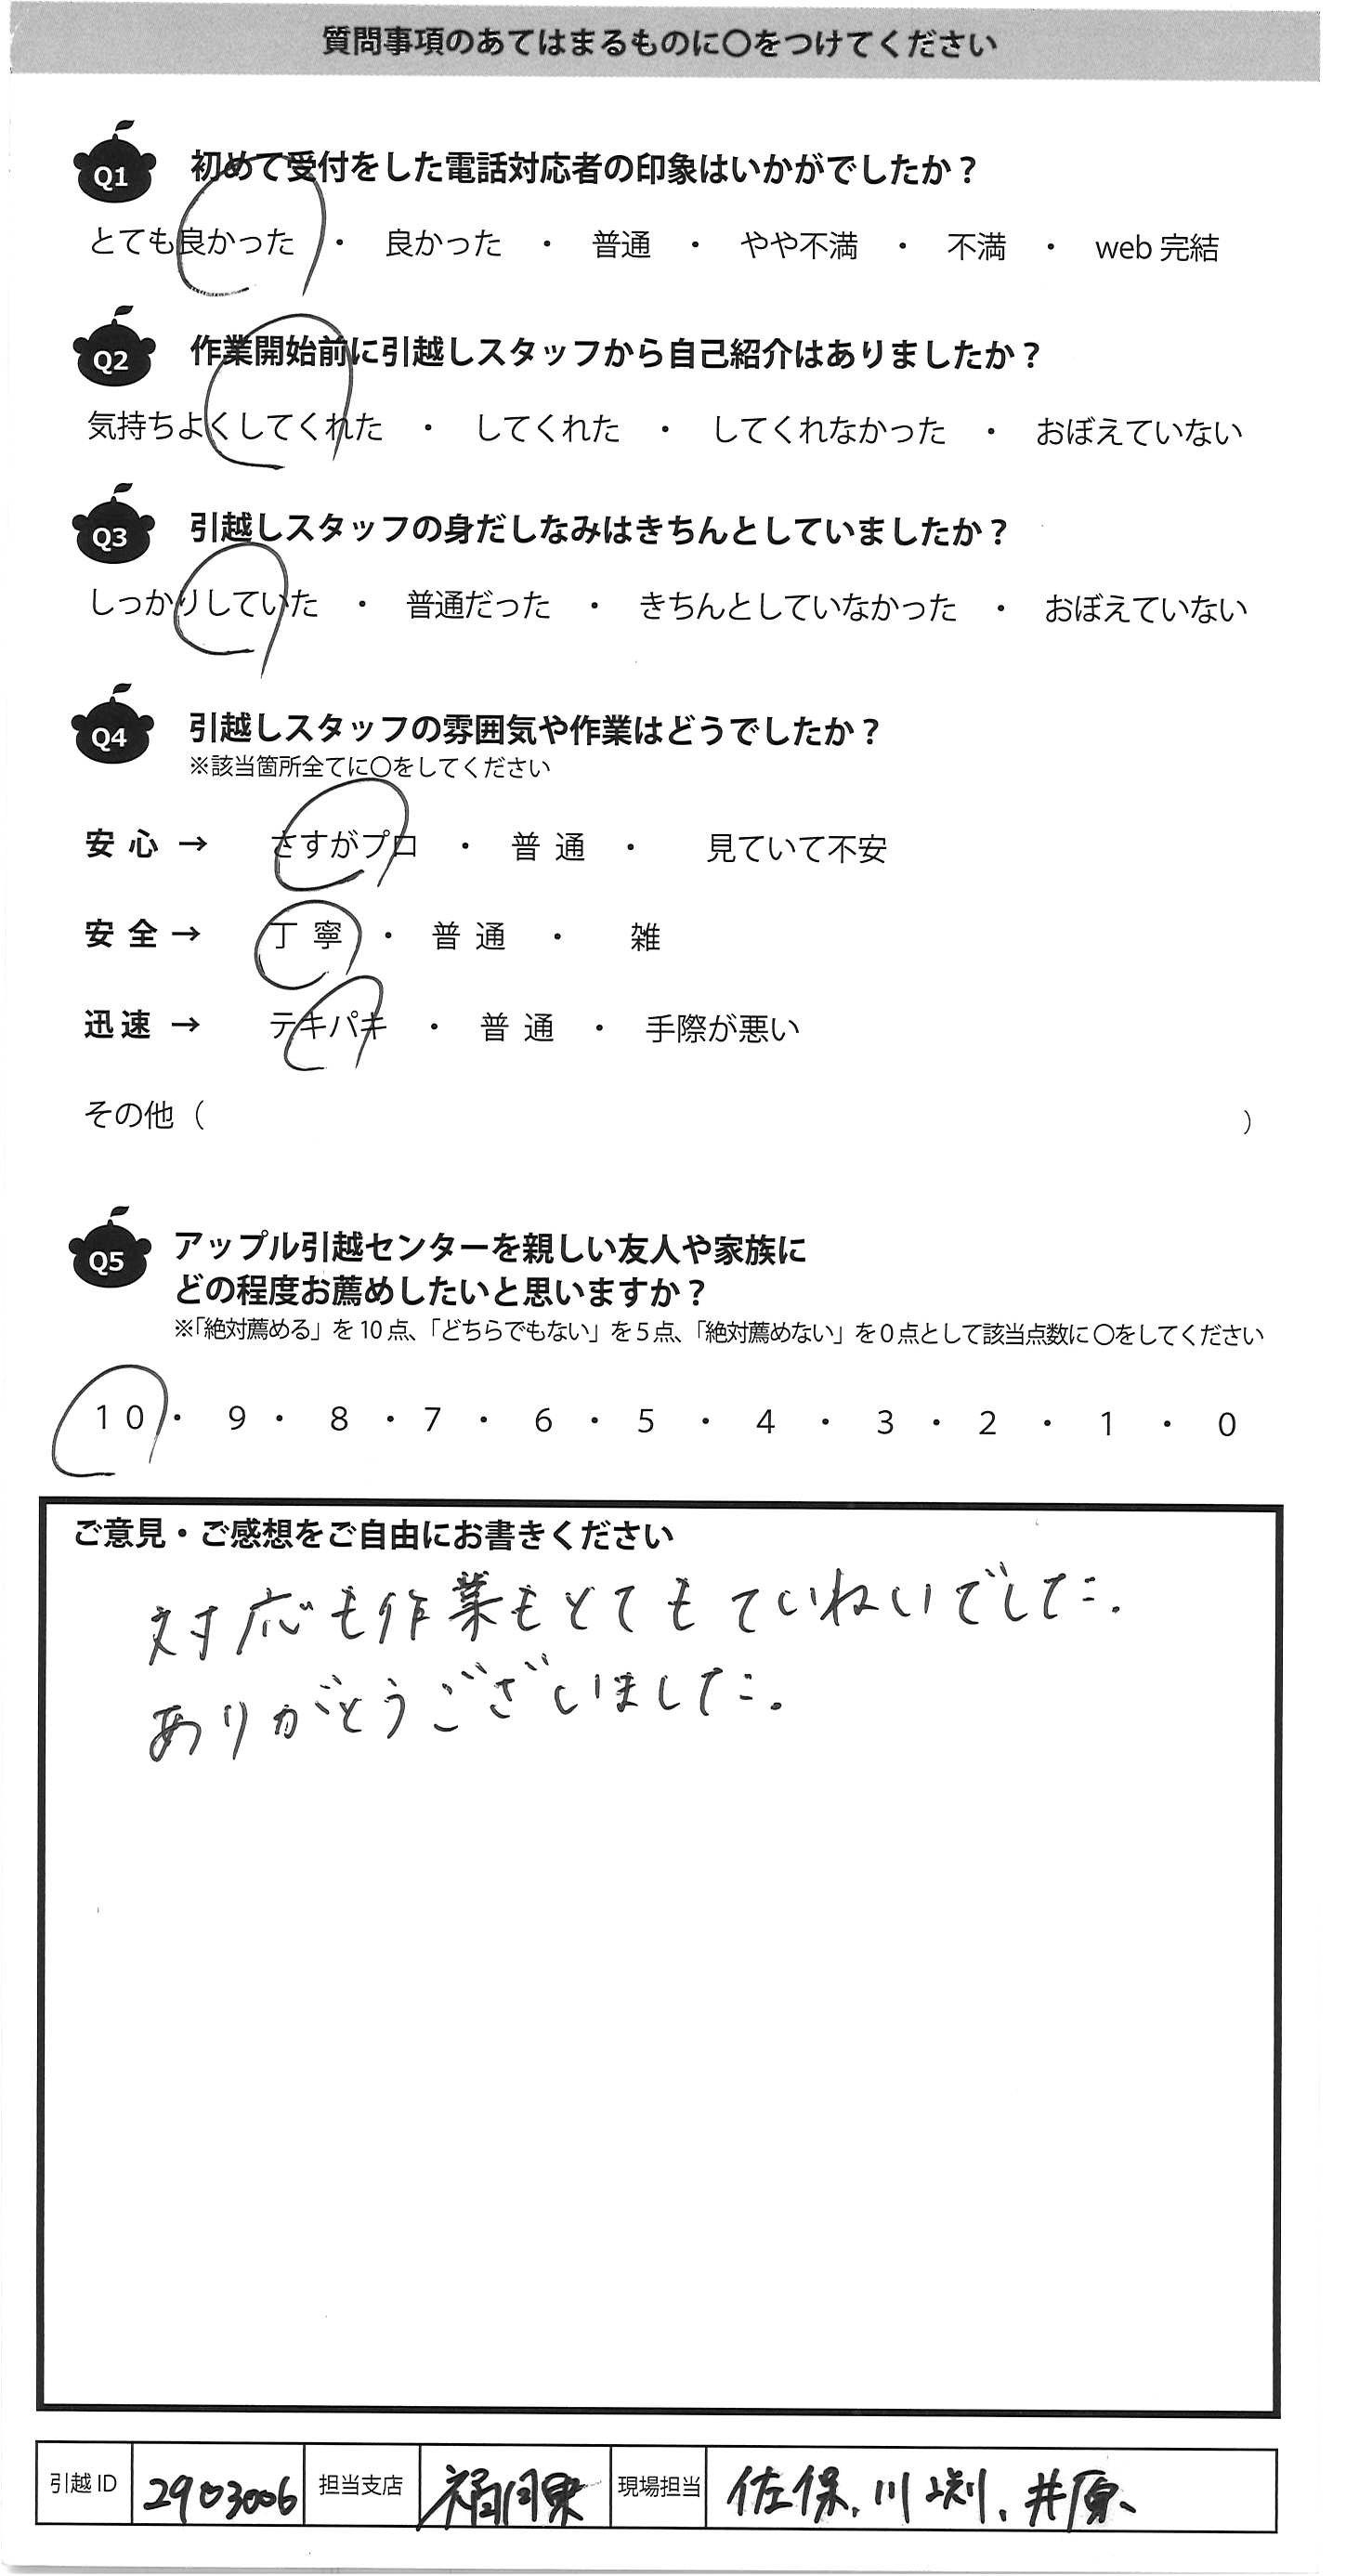 質問事項のあてはまるものに〇をつけてください
Q1 初めて受付をした電話対応者の印象はいかがでしたか？
とても良かった ・ 良かった ・ 普通 ・ やや不満 ・ 不満 ・ web 完結
Q2 作業開始前に引越しスタッフから自己紹介はありましたか？
気持ちよくしてくれた ・ してくれた ・ してくれなかった ・ おぼえていない
Q3 引越しスタッフの身だしなみはきちんとしていましたか？
しっかりしていた ・ 普通だった ・ きちんとしていなかった ・ おぼえていない
Q4 引越しスタッフの雰囲気や作業はどうでしたか？
※該当箇所全てに〇をしてください
安心 → さすがプロ ・ 普通 ・ 見ていて不安
安全 → 丁寧 ・ 普通 ・ 雑
迅速 → テキパキ ・ 普通 ・ 手際が悪い
その他（ ）
Q5 アップル引越センターを親しい友人や家族に
どの程度お薦めしたいと思いますか？
※「絶対薦める」を10点、「どちらでもない」を5点、「絶対薦めない」を0点として該当点数に〇をしてください
10 ・ 9 ・ 8 ・ 7 ・ 6 ・ 5 ・ 4 ・ 3 ・ 2 ・ 1 ・ 0
ご意見・ご感想をご自由にお書きください
対応も作業もとてもていねいでした.
ありがとうございました。
引越ID 2903006 担当支店 福岡東 現場担当 佐保、川渕、井原、